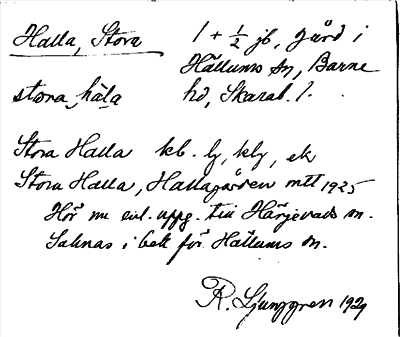 Halla, Stora
1 + ½ jb, gård i
Hällums sn, Barne
stora hála
hd, Skarab. l.
Stora Halla kb. lf, klf, ek
Stora Halla, Hallagården mtl 1925
Hör nu enl. uppg. till Härjevads sn.
Saknas i bek för Hällums sn.
R. Ljunggren 1929